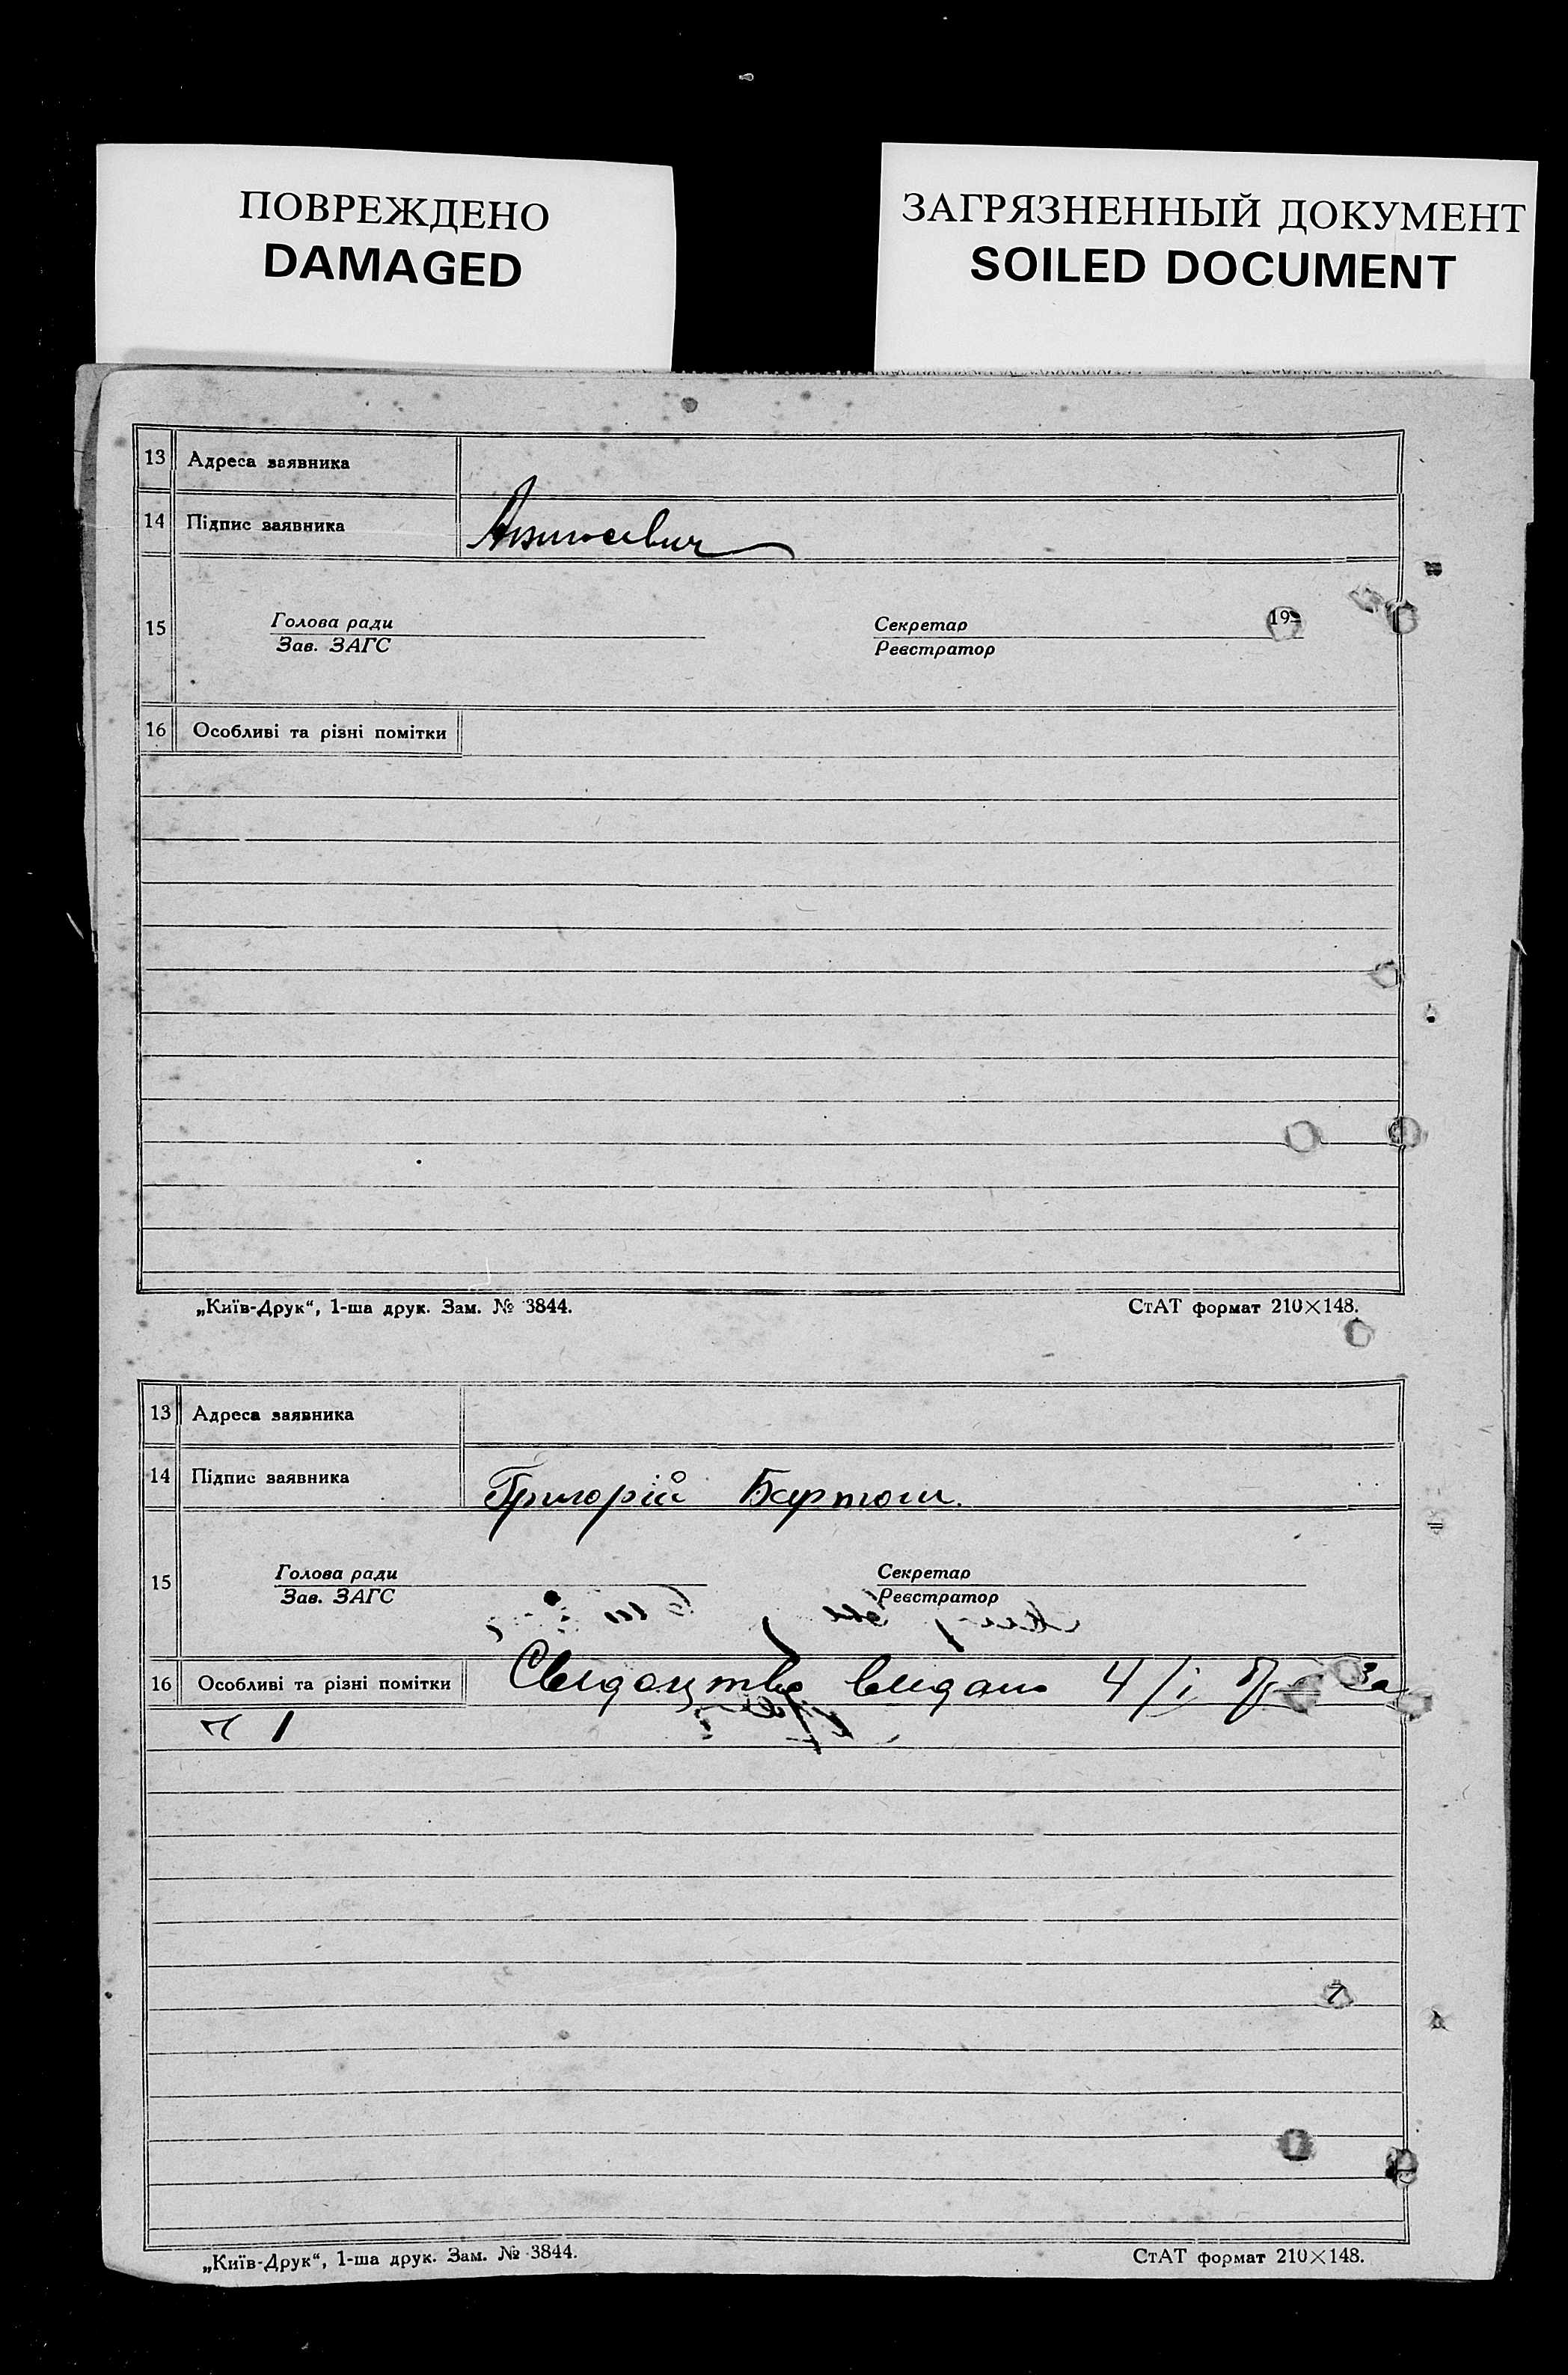 ПОВРЕЖДЕНО
DAMAGED
ЗАГРЯЗНЕННЫЙ ДОКУМЕНТ
SOILED DOCUMENT
13 Адреса заявника
14 Підпис заявника
15 Голова ради Секретар 19
Зав. ЗАГС Реєстратор
16 Особливі та різні помітки
„Київ-Друк“, 1-ша друк. Зам. № 3844. СтАТ формат 210×148.
13 Адреса заявника
14 Підпис заявника Григорій Бартош.
15 Голова ради Секретар
Зав. ЗАГС Реєстратор
16 Особливі та різні помітки Свидоцтво видано 4/i за
ч 1
„Київ-Друк“, 1-ша друк. Зам. № 3844. СтАТ формат 210×148.